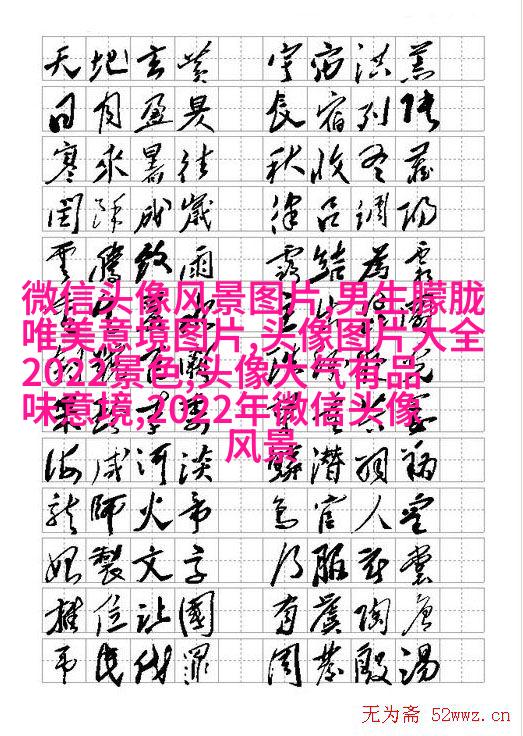 天地玄黄 宇宙洪荒
日月盈昃 辰宿列張
寒來暑往 秋收冬藏
閏餘成歲 律呂調陽
雲騰致雨 露結為霜
微信头像风景图片,男生朦胧
唯美意境图片,头像图片大全
2022景色,头像大气有品
味意境,2022年微信头像
风景
海咸河淡 鱗潜羽翔
龍師火帝 鳥官人皇
始製文字 乃服衣裳
推位讓國 有虞陶唐
吊民伐罪 周發殷湯
无为斋 52wwz.cn